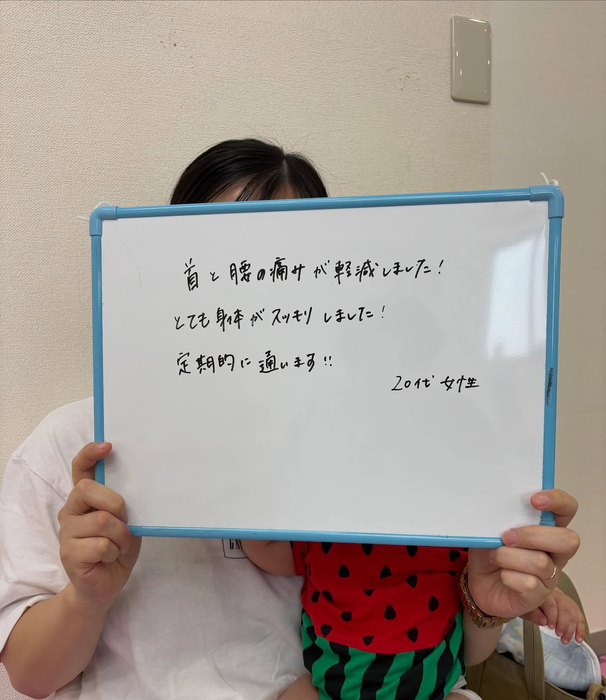 首と腰の痛みが軽減しました!
とても身体がスッキリしました!
定期的に通います!!
20代 女性